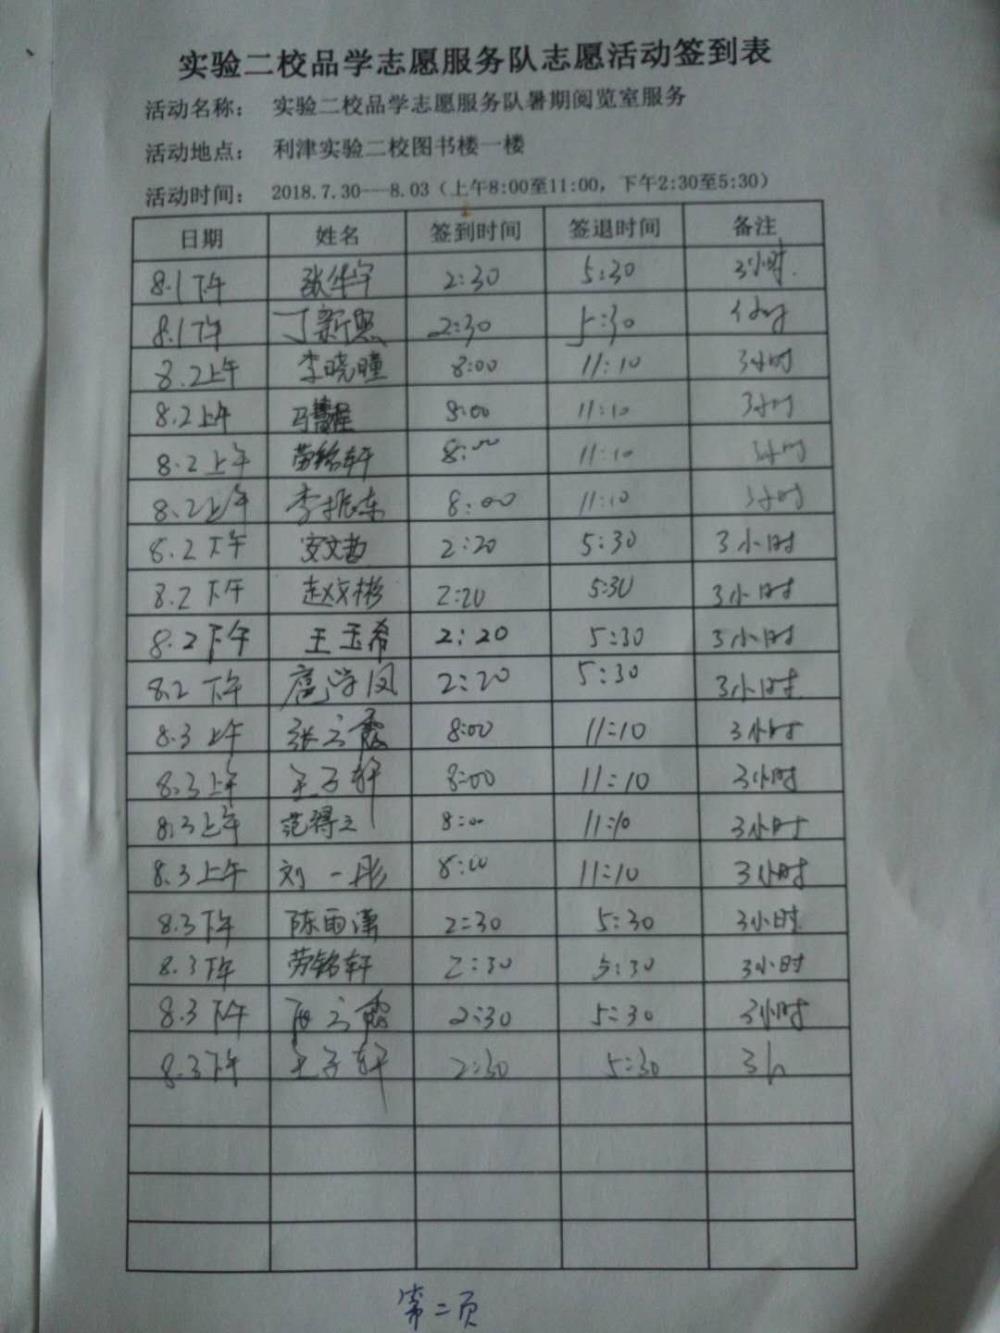 实验二校品学志愿服务队志愿活动签到表
活动名称： 实验二校品学志愿服务队暑期阅览室服务
活动地点： 利津实验二校图书楼一楼
活动时间： 2018.7.30——8.03（上午8:00至11:00，下午2:30至5:30）
日期 姓名 签到时间 签退时间 备注
8.1下午 张华宇 2:30 5:30 3小时.
8.1下午 丁新 2:30 5:30 小时
8.2上午 李晓瞳 8:00 11:10 3小时
8.2上午 马 8:00 11:10 3小时
8.2上午 劳铭轩 8:00 11:10 3小时
8.2上午 李振东 8:00 11:10 3小时
8.2下午 安文哲 2:20 5:30 3小时
8.2下午 赵文彬 2:20 5:30 3小时
8.2下午 王玉希 2:20 5:30 3小时
8.2下午 2:20 5:30 3小时
8.3上午 张云霞 8:00 11:10 3小时
8.3上午 王子轩 8:00 11:10 3小时
8.3上午 范得之 8:00 11:10 3小时
8.3上午 刘一彤 8:00 11:10 3小时
8.3下午 陈雨潇 2:30 5:30 3小时
8.3下午 劳铭轩 2:30 5:30 3小时
8.3下午 云霞 2:30 5:30 3小时
8.3下午 王子轩 2:30 5:30 3h
第二页